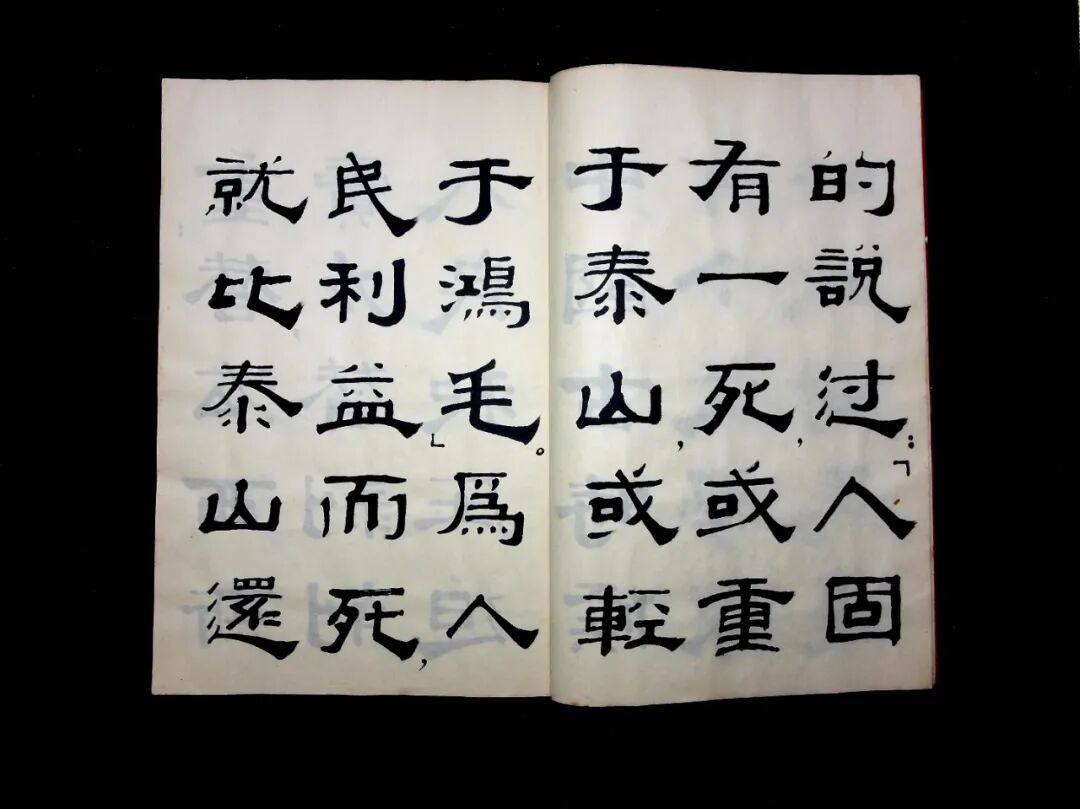 的說过：「人固
有一死，或重
于泰山，或輕
于鴻毛。」爲人
民利益而死，
就比泰山還